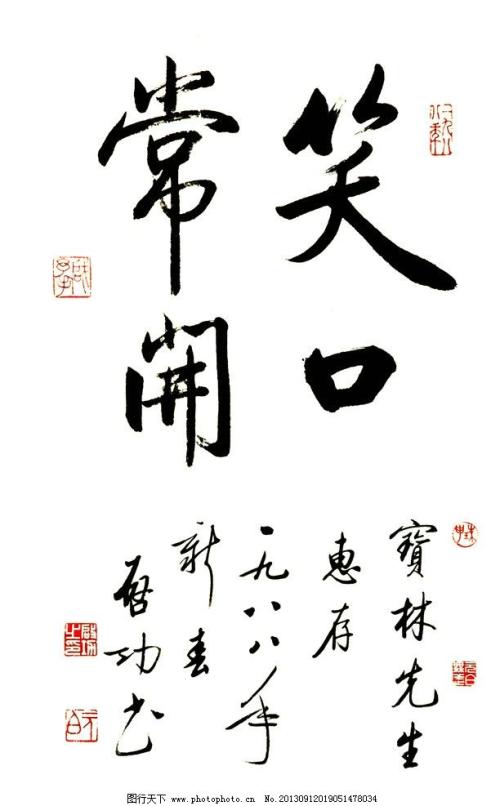 笑口
常開
寶林先生
惠存
一九八八年
新春
啟功书
图行天下 www.photophoto.cn No.20130912019051478034